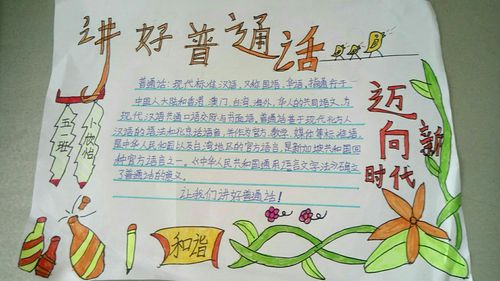 讲好普通话
普通话:现代标准汉语,又称国语,华语,指通行于
中国人大陆和香港、澳门、台湾、海外,华人的共同语文,为
现代汉语共通口语交际与书面语。普通话基于现代北方人
汉语的语法和北京话语音,并作为官方、教学、媒体等标准语,
是中华人民和国以及台湾地区的官方语言,是新加坡共和国四
种官方语言之一。《中华人民共和国通用语言文学法》确立
了普通话的意义。
让我们讲好普通话!
五一班
小欣怡
迈向新
时代
和谐